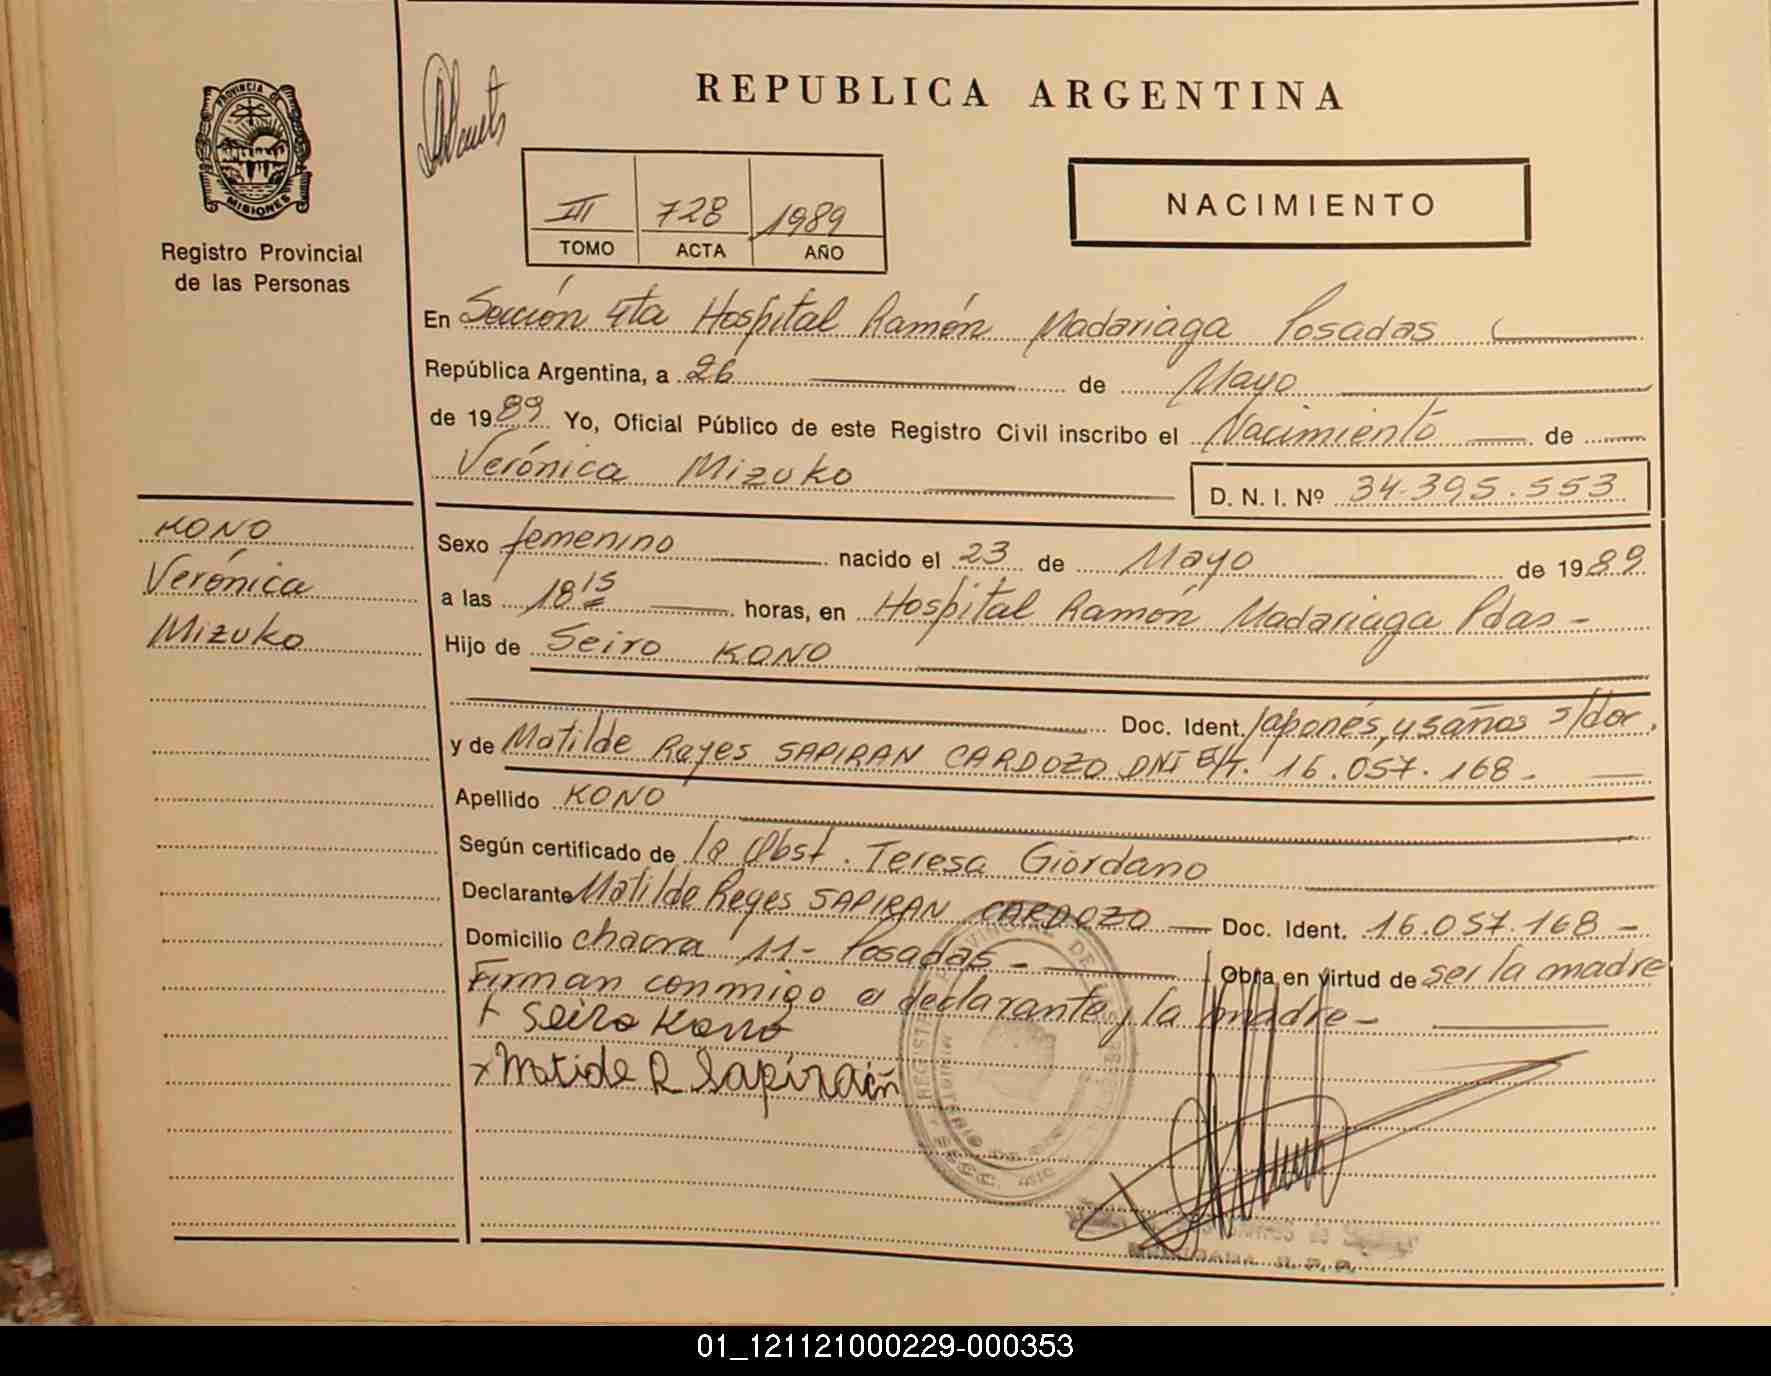 REPUBLICA ARGENTINA
PROVINCIA DE
MISIONES
Registro Provincial
de las Personas
III 728 1989
TOMO ACTA AÑO
NACIMIENTO
En Sección 4ta Hospital Ramón Madariaga Posadas
República Argentina, a 26 de Mayo
de 1989 Yo, Oficial Público de este Registro Civil inscribo el Nacimiento de
Verónica Mizuko
D. N. I. Nº 34.395.553
KONO
Verónica
Mizuko
Sexo femenino nacido el 23 de Mayo de 1989
a las 18 15 horas, en Hospital Ramón Madariaga Pdas -
Hijo de Seiro KONO
Doc. Ident. Japonés, 45 años s/doc.
y de Matilde Reyes SAPIRAN CARDOZO DNI E/T. 16.057.168 -
Apellido KONO
Según certificado de la Obst. Teresa Giordano
Declarante Matilde Reyes SAPIRAN CARDOZO Doc. Ident. 16.057.168 -
Domicilio chacra 11 - Posadas - Obra en virtud de ser la madre
Firman conmigo el declarante y la madre -
+ Seiro Kono
x Matide R Sapirain
01_121121000229-000353